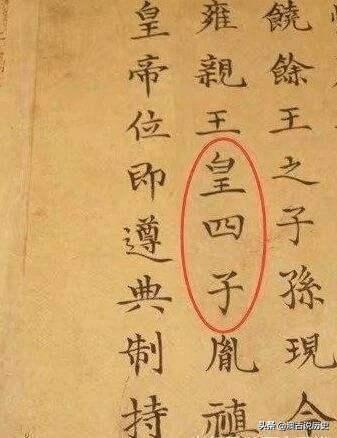 饒餘王之子孫現今
雍親王皇四子胤禛
皇帝位即遵典制持
头条 @古说历史